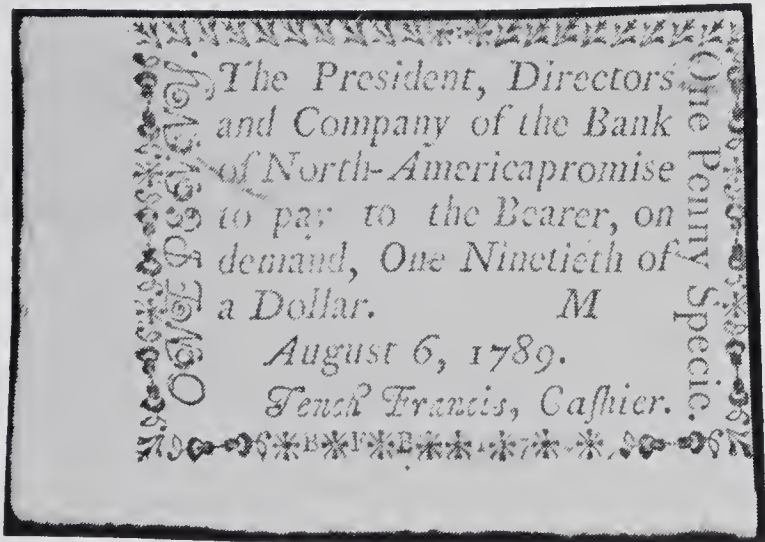 The President, Directors
and Company of the Bank
of North-America promise
to pay to the Bearer, on
demand, One Ninetieth of
a Dollar. M
August 6, 1789.
Tench Francis, Caſhier.
ONE PENNY.
One Penny Specie.